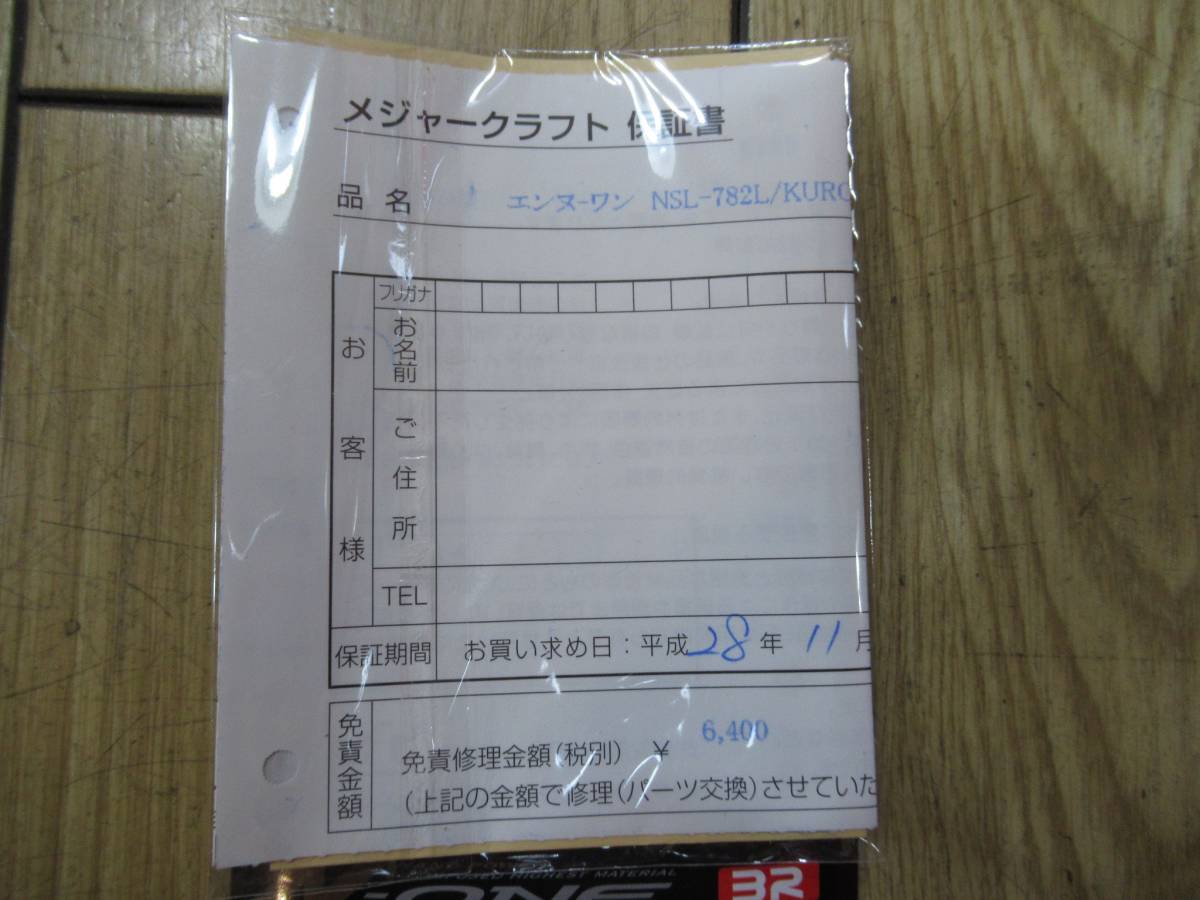 メジャークラフト 保証書
品名 エンヌ-ワン NSL-782L/KURO
フリガナ
お名前
お客様
ご住所
TEL
保証期間 お買い求め日：平成28年 11月
免責金額
6,400
免責修理金額(税別) ¥
(上記の金額で修理(パーツ交換)させていた
HIGHEST MATERIAL
ONE
3R